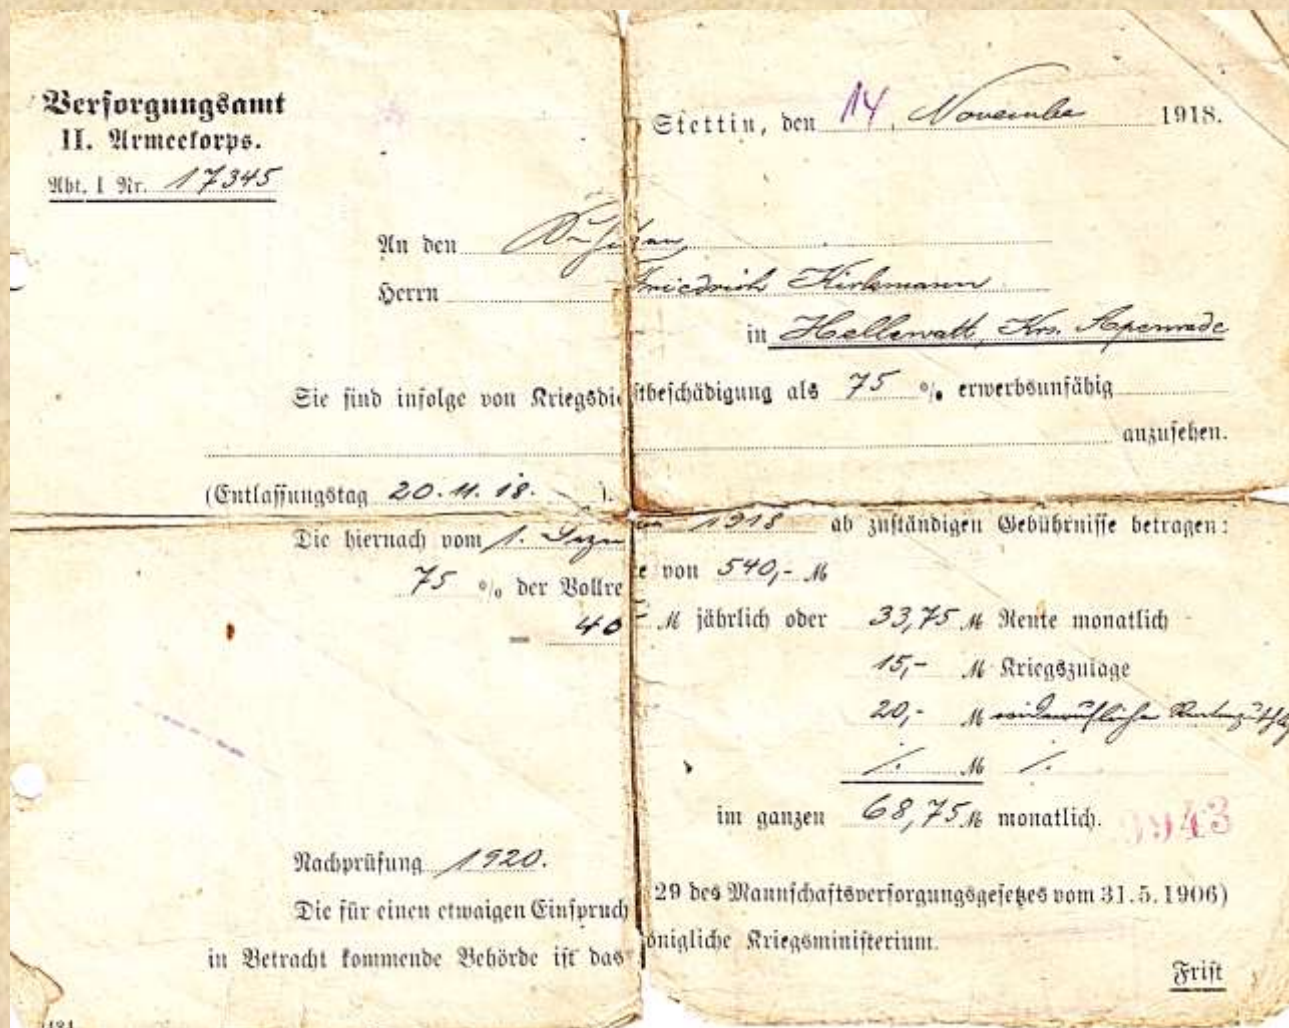 Versorgungsamt
II. Armeekorps.
Abt. I Nr. 17345
Stettin, den 14. November 1918.
An den
Herrn Friedrich Kirkmann
in Hellewatt, Krs. Apenrade
Sie sind infolge von Kriegsdienstbeschädigung als 75 % erwerbsunfähig
anzusehen.
(Entlassungstag 20.11.18. ).
Die hiernach vom 1. Dezem 1918 ab zuständigen Gebührnisse betragen:
75 % der Vollre e von 540,- M
= 40 - M jährlich oder 33,75 M Rente monatlich
15,- M Kriegszulage
20,- M widerrufliche Rentenzuschlag
./. M ./.
im ganzen 68,75 M monatlich.
9943
Nachprüfung 1920.
Die für einen etwaigen Einspruch 29 des Mannschaftsversorgungsgesetzes vom 31.5.1906)
in Betracht kommende Behörde ist das Königliche Kriegsministerium.
Frist